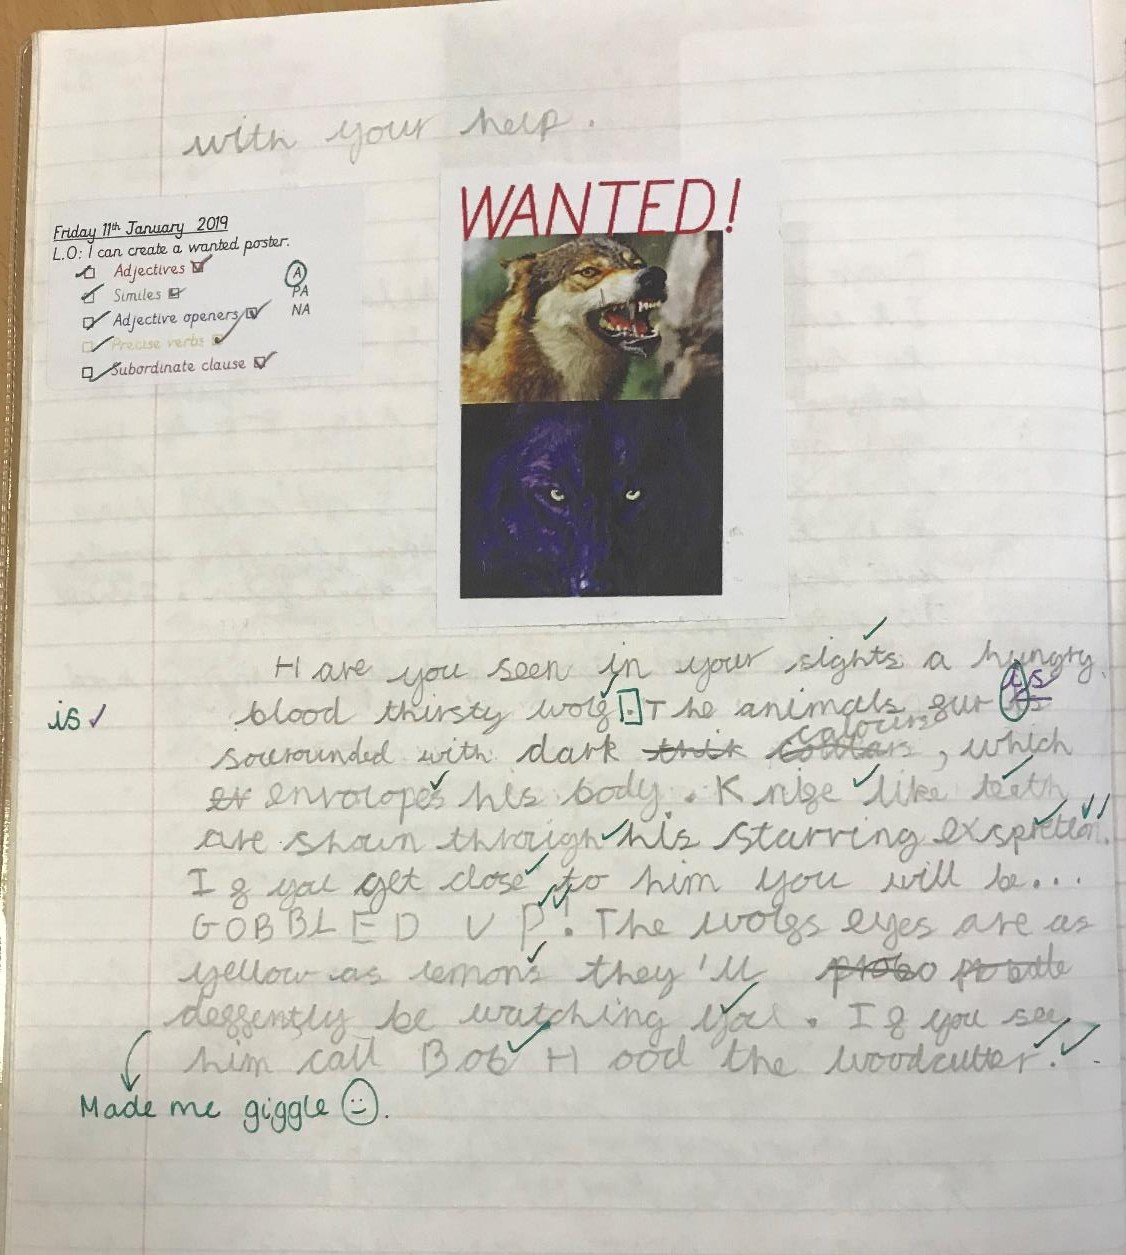 with your help.
WANTED!
Friday 11th January 2019
L.O: I can create a wanted poster.
Adjectives
Similes
Adjective openers
Precise verbs
Subordinate clause
A
PA
NA
Hare you seen in your sights a hungry
is
blood thirsty wolf. The animals fur is
sourounded with dark thik colours, which
envolopes his body. Knife like teeth
are shown through his starving exspretion.
If you get close to him you will be...
GOBBLED UP!. The wolfs eyes are as
yellow as lemons they'll
deffently be watching you. If you see
him call Bob Hood the woodcutter.
Made me giggle